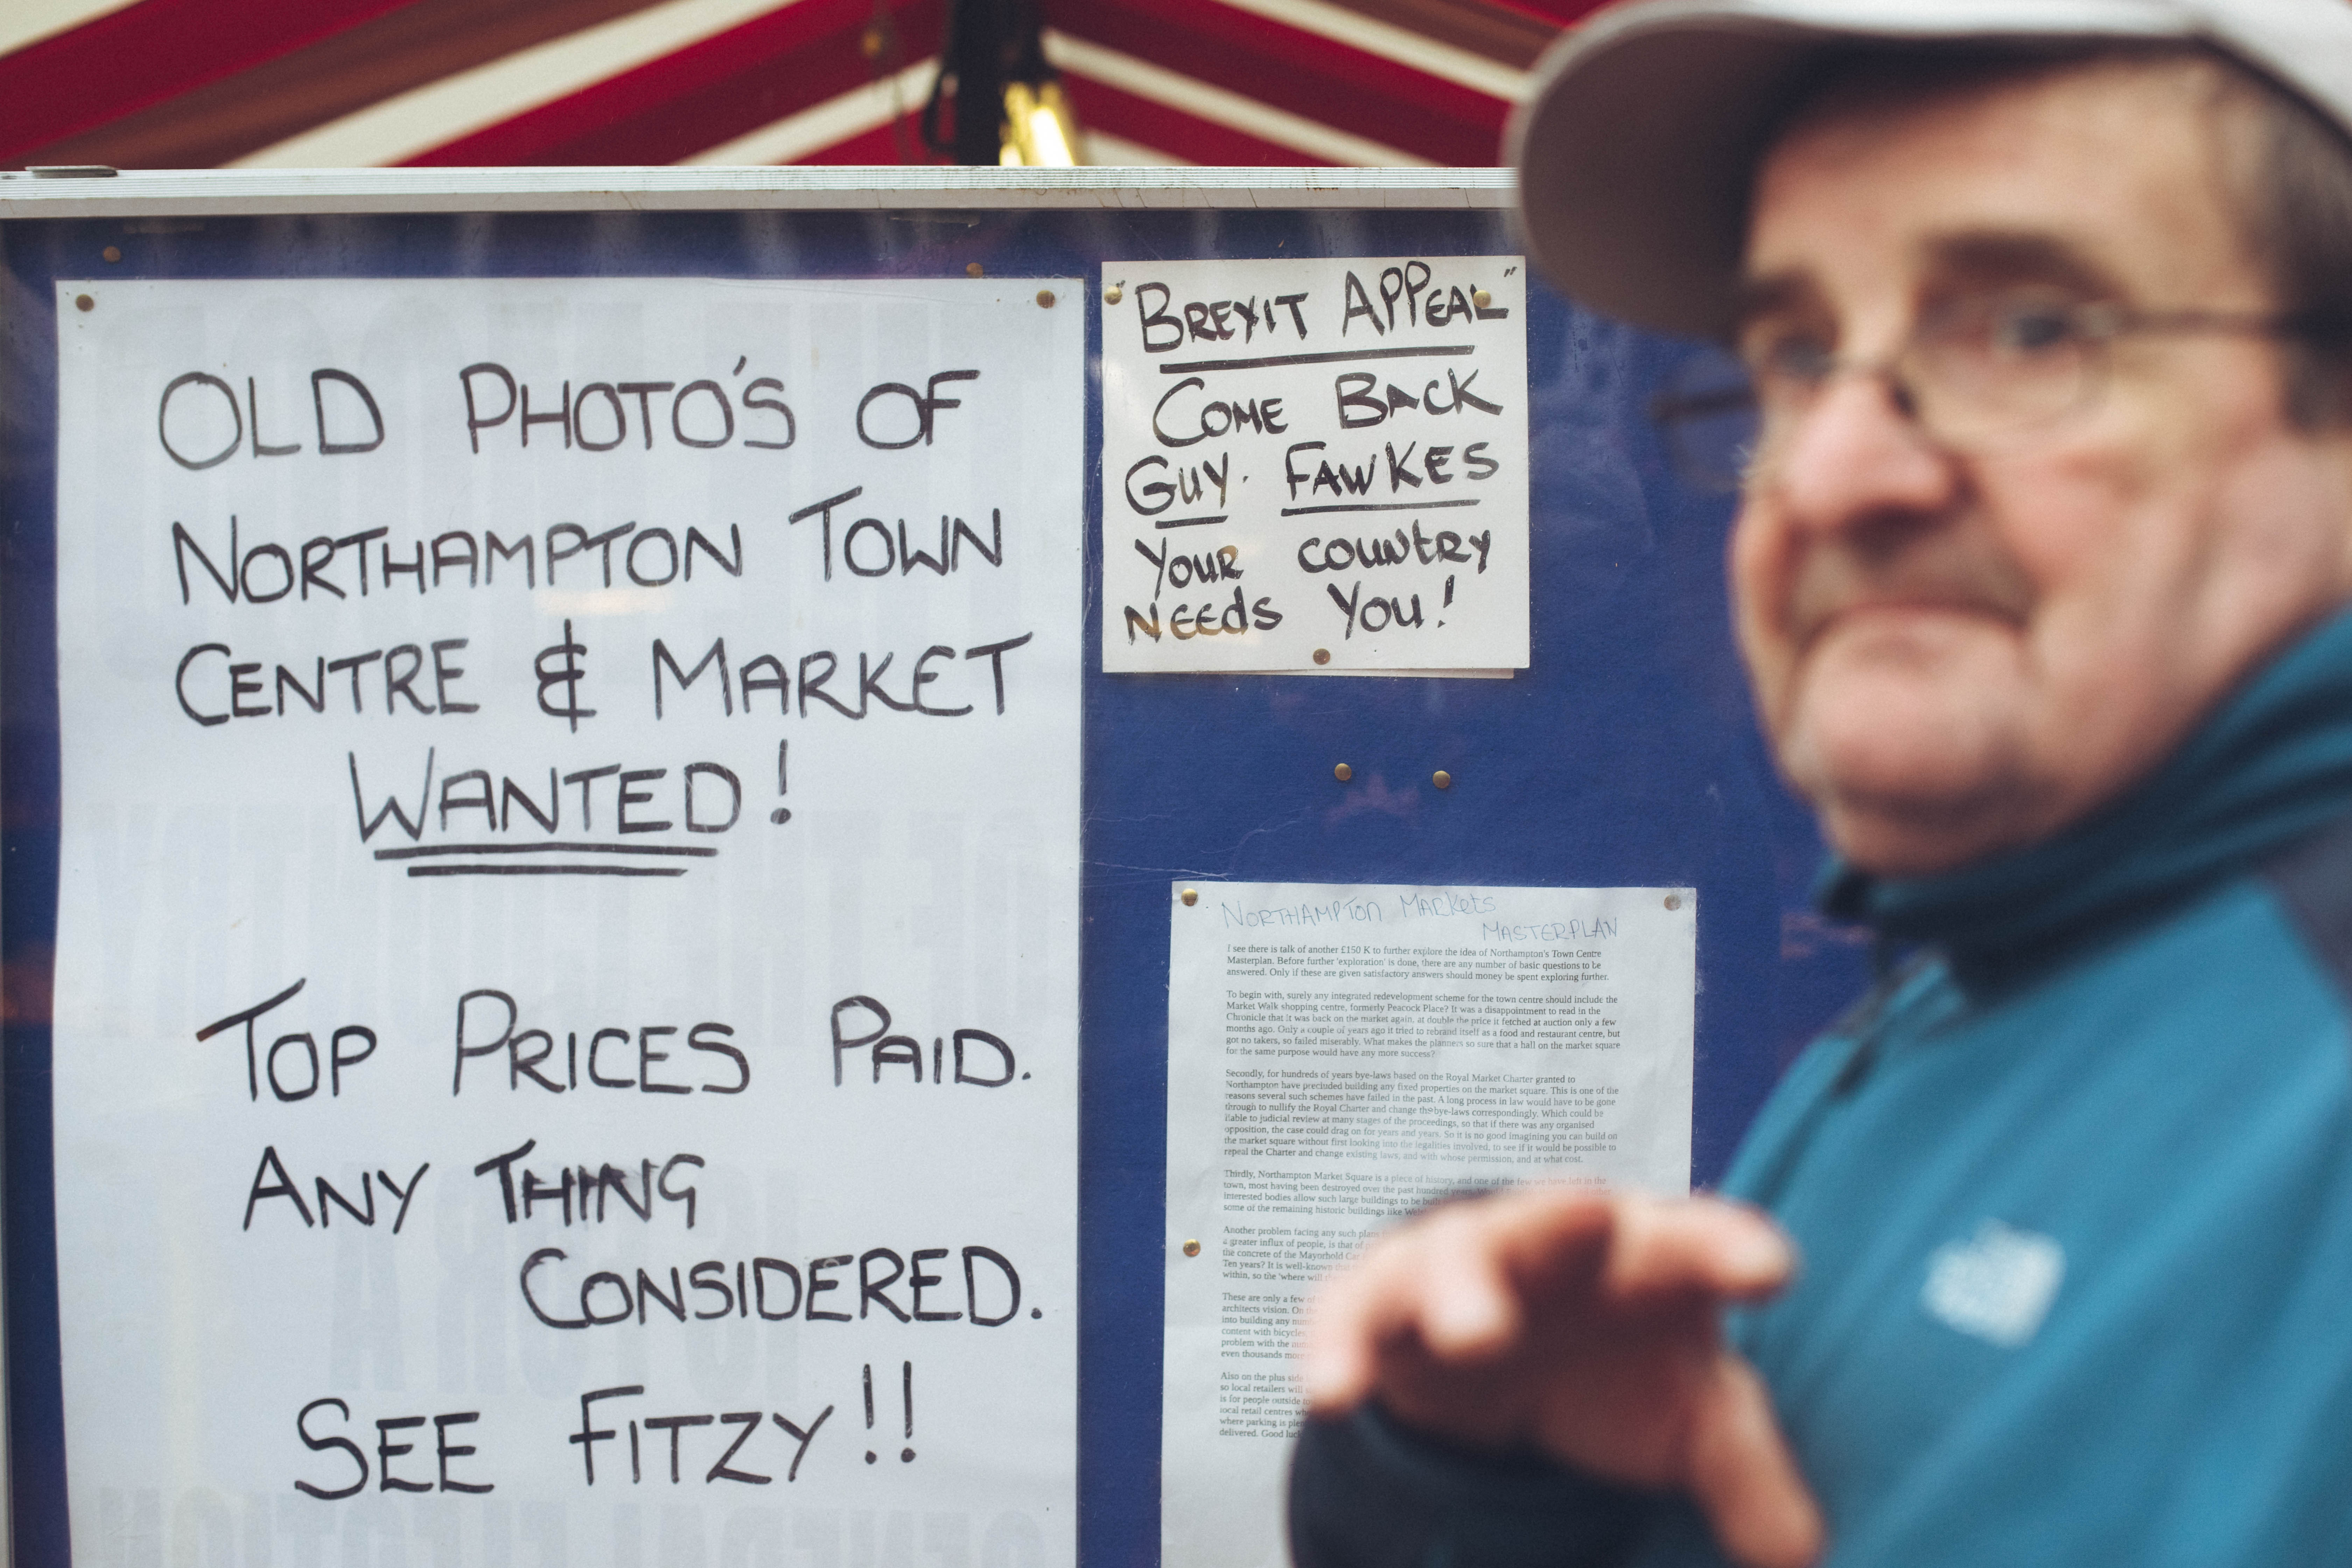 OLD PHOTO'S OF
NORTHAMPTON TOWN
CENTRE & MARKET
WANTED!
TOP PRICES PAID.
ANY THING
CONSIDERED.
SEE FITZY!!
"BREXIT APPEAL"
COME BACK
GUY. FAWKES
YOUR COUNTRY
NEEDS YOU!
NORTHAMPTON MARKETS
MASTERPLAN
I see there is talk of another £150 K to further explore the idea of Northampton's Town Centre
Masterplan. Before further 'exploration' is done, there are any number of basic questions to be
answered. Only if these are given satisfactory answers should money be spent exploring further.
To begin with, surely any integrated redevelopment scheme for the town centre should include the
Market Walk shopping centre, formerly Peacock Place? It was a disappointment to read in the
Chronicle that it was back on the market again, at double the price it fetched at auction only a few
months ago. Only a couple of years ago it tried to rebrand itself as a food and restaurant centre, but
got no takers, so failed miserably. What makes the planners so sure that a hall on the market square
for the same purpose would have any more success?
Secondly, for hundreds of years bye-laws based on the Royal Market Charter granted to
Northampton have precluded building any fixed properties on the market square. This is one of the
reasons several such schemes have failed in the past. A long process in law would have to be gone
through to nullify the Royal Charter and change the bye-laws correspondingly. Which could be
liable to judicial review at many stages of the proceedings, so that if there was any organised
opposition, the case could drag on for years and years. So it is no good imagining you can build on
the market square without first looking into the legalities involved, to see if it would be possible to
repeal the Charter and change existing laws, and with whose permission, and at what cost.
Thirdly, Northampton Market Square is a piece of history, and one of the few we have left in the
town, most having been destroyed over the past hundred years.
interested bodies allow such large buildings to be built
some of the remaining historic buildings like
Another problem facing any such plans
a greater influx of people, is that of
the concrete of the Mayorhold
Ten years? It is well-known
within, so the 'where will
These are only a few of
architects vision. On
into building any
content with bicycles
problem with the
even thousands
Also on the plus side
so local retailers will
is for people outside
local retail centres
where parking is
delivered. Good